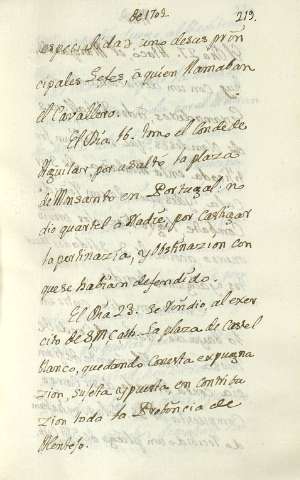 de 1709. 219.
especialidad uno de sus prin
cipales Gefes, a quien llamaban
el Cavallero.
El Dia 16. tomo el Conde de
Aguilar, por asalto la plaza
de Monsanto en Portugal: no
dio quartel a Nadie, por castigar
la pertinazia, y obstinazion con
que se habian defendido.
El Dia 23. se rindio al exer
cito de S. M. Cath. la plaza de Castel
blanco, quedando con esta expugna
zion, sujeta a y puesta en contribu
zion toda la Probincia de